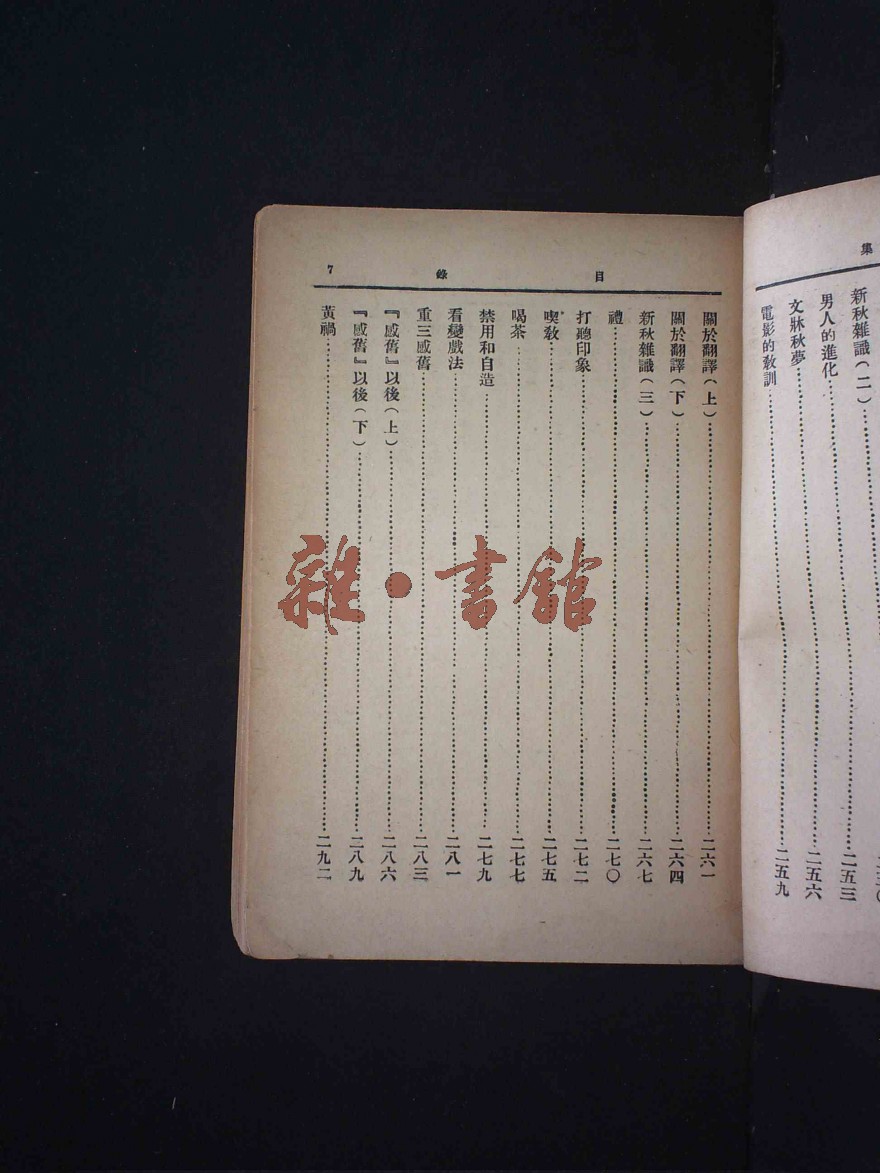 集
新秋雜識(二)……
男人的進化……二五三
文牀秋夢……二五六
電影的教訓……二五九
目錄 7
關於翻譯(上)……二六一
關於翻譯(下)……二六四
新秋雜識(三)……二六七
禮……二七〇
打聽印象……二七二
喫教……二七五
喝茶……二七七
禁用和自造……二七九
看變戲法……二八一
重三感舊……二八三
『感舊』以後(上)……二八六
『感舊』以後(下)……二八九
黃禍……二九二
雜·書館